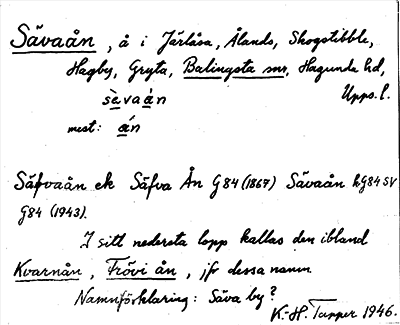 Sävaån, å i Järlåsa, Ålands, Skogstibble,
Hagby, Gryta, Balingsta snr, Hagunda hd,
Upps. l.
sèvaán
mest: án
Säfvaån ek Säfva Ån G84 (1867) Sävaån hG84 SV
G84 (1943).
I sitt nedersta lopp kallas den ibland
Kvarnån, Frövi ån, jfr dessa namn
Namnförklaring: Säva by?
K.-H. Tapper 1946.